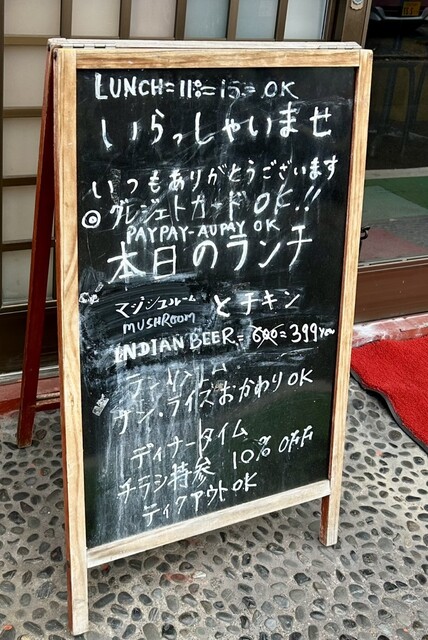 LUNCH=11:00=15= OK
いらっしゃいませ
いつもありがとうございます
◎グレジェトカードOK!!
PAYPAY-AUPAY OK
本日のランチ
マジシュルーム
MUSHROOM
とチキン
INDIAN BEER=600=399yen
ナン・ライズおかわりOK
ディナータイム
チラシ特参 10% OFF
ティクアウトOK